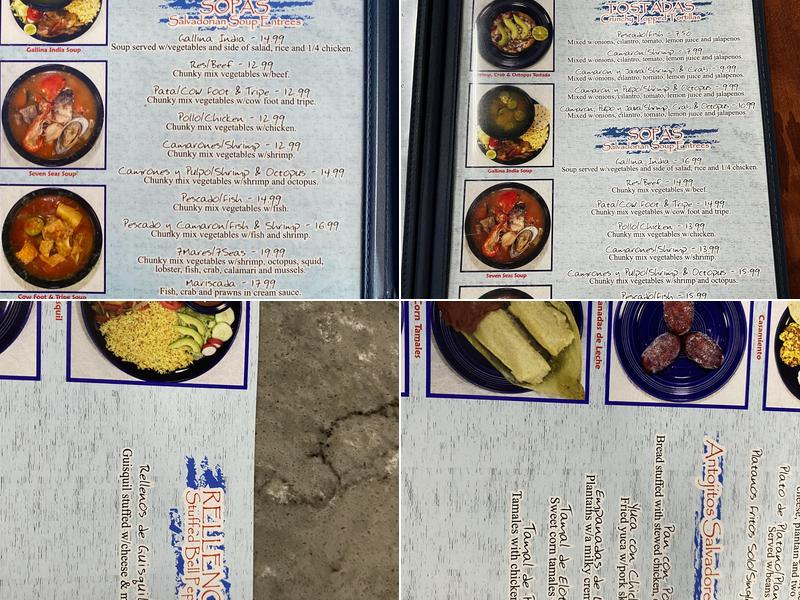 SOPAS
Salvadorian Soup Entrees
Gallina India - 14.99
Soup served w/vegetables and side of salad, rice and 1/4 chicken.
Res/Beef - 12.99
Chunky mix vegetables w/beef.
Pata/Cow Foot & Tripe - 12.99
Chunky mix vegetables w/cow foot and tripe.
Pollo/Chicken - 12.99
Chunky mix vegetables w/chicken.
Camarones/Shrimp - 12.99
Chunky mix vegetables w/shrimp.
Camrones y Pulpo/Shrimp & Octopus - 14.99
Chunky mix vegetables w/shrimp and octopus.
Pescado/Fish - 14.99
Chunky mix vegetables w/fish.
Pescado y Camaron/Fish & Shrimp - 16.99
Chunky mix vegetables w/fish and shrimp.
7Mares/7Seas - 19.99
Chunky mix vegetables w/shrimp, octopus, squid,
lobster, fish, crab, calamari and mussels.
Mariscada - 17.99
Fish, crab and prawns in cream sauce.
Gallina India Soup
Seven Seas Soup
Cow Foot & Tripe Soup
TOSTADAS
Crunchy Topped Tortillas
Pescado/Fish - 7.50
Mixed w/onions, cilantro, tomato, lemon juice and jalapenos.
Camaron/Shrimp - 7.99
Mixed w/onions, cilantro, tomato, lemon juice and jalapenos.
Camaron y Jaiva/Shrimp & Crab - 9.99
Mixed w/onions, cilantro, tomato, lemon juice and jalapenos.
Camaron y Pulpo/Shrimp & Octopus - 9.99
Mixed w/onions, cilantro, tomato, lemon juice and jalapenos.
Camaron, Pulpo y Jaiva/Shrimp, Crab & Octopus - 10.99
Mixed w/onions, cilantro, tomato, lemon juice and jalapenos.
SOPAS
Salvadorian Soup Entrees
Gallina India - 16.99
Soup served w/vegetables and side of salad, rice and 1/4 chicken.
Res/Beef - 14.99
Chunky mix vegetables w/beef.
Pata/Cow Foot & Tripe - 14.99
Chunky mix vegetables w/cow foot and tripe.
Pollo/Chicken - 13.99
Chunky mix vegetables w/chicken.
Camarones/Shrimp - 13.99
Chunky mix vegetables w/shrimp.
Camrones y Pulpo/Shrimp & Octopus - 15.99
Chunky mix vegetables w/shrimp and octopus.
Pescado/Fish - 15.99
Crab & Octopus Tostada
Gallina India Soup
Seven Seas Soup
squil
RELLENO
Stuffed Bell Pep
Rellenos de Guisquil
Guisquil stuffed w/cheese & m
orn Tamales
anadas de Leche
Casamiento
cheese, plantain and two
Plato de Platano/Plan
Served w/beans
Platanos Fritos Solo/Sing
Antojitos Salvadore
Pan con Po
Bread stuffed with stewed chicken,
Yuca con Chic
Fried yuca w/pork sk
Empanadas de L
Plantains w/a milky crem
Tamal de Elot
Sweet corn tamales
Tamal de P
Tamales with chicken